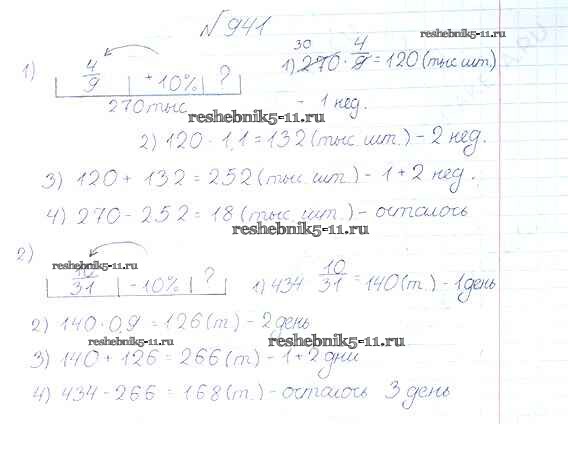 №941
reshebnik5-11.ru
1) 4/9 | +10% | ? 1) 270 · 4/9 = 120 (тыс шт)
30
270 тыс - 1 нед.
reshebnik5-11.ru
2) 120 · 1,1 = 132 (тыс. шт.) - 2 нед.
3) 120 + 132 = 252 (тыс. шт) - 1 + 2 нед.
4) 270 - 252 = 18 (тыс. шт.) - осталось
reshebnik5-11.ru
2)
reshebnik5-11.ru
10/31 | -10% | ? 1) 434 10/31 = 140 (т.) - 1 день
2) 140 · 0,9 = 126 (т) - 2 день
reshebnik5-11.ru
3) 140 + 126 = 266 (т) - 1 + 2 дни
4) 434 - 266 = 168 (т.) - осталось 3 день